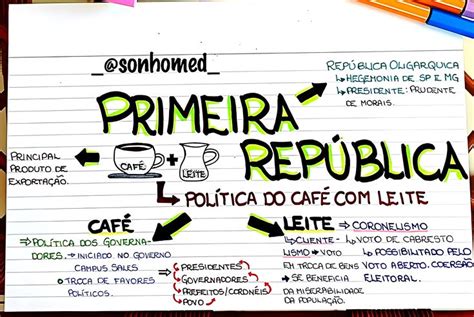 _@sonhomed_
REPÚBLICA OLIGARQUICA
↳ HEGEMONIA DE SP E MG
↳ PRESIDENTE: PRUDENTE
DE MORAIS.
PRIMEIRA
REPÚBLICA
PRINCIPAL
PRODUTO DE
EXPORTAÇÃO.
CAFÉ + LEITE
↳ POLÍTICA DO CAFÉ COM LEITE
CAFÉ
⇒ POLÍTICA DOS GOVERNA-
DORES. → INICIADO NO GOVERNO
CAMPUS SALES
TROCA DE FAVORES
POLÍTICOS.
→ PRESIDENTES
GOVERNADORES
PREFEITOS/CORONÉIS
POVO
LEITE → CORONELISMO
↳ CLIENTE-
LISMO → VOTO
EM TROCA DE BENS
→ SE BENEFICIA
DA MISERABILIDADE
DA POPULAÇÃO.
↳ VOTO DE CABRESTO
↳ POSSIBILITADO PELO
VOTO ABERTO. COERSÃO
ELEITORAL.